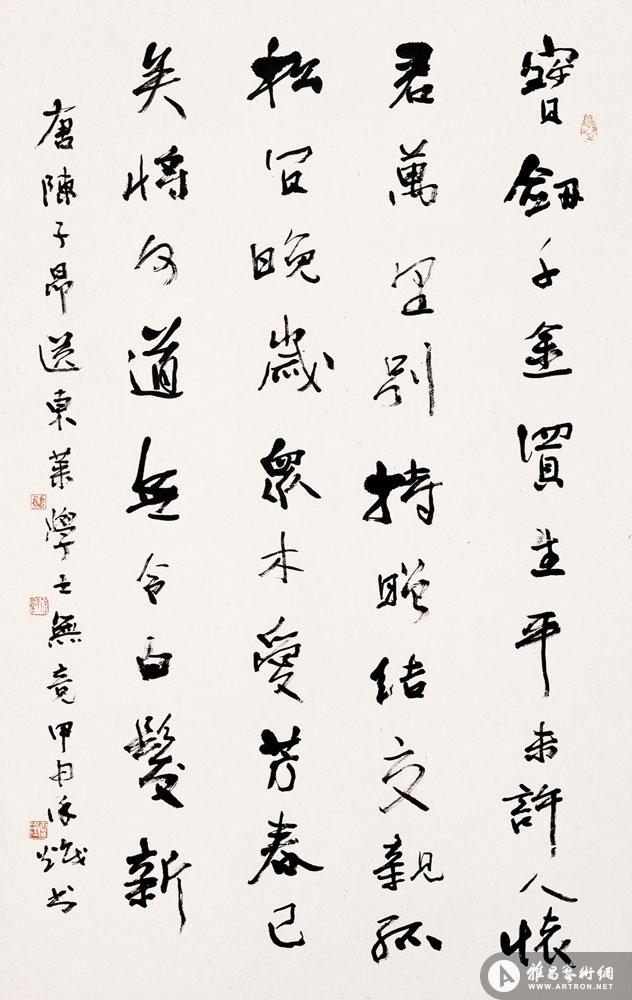 寶劔千金買生平未許人懷
君萬里別持贈結交親孤
松宜晚歲眾木愛芳春已
矣將何道無令白髮新
唐陳子昂送東萊學士無竟甲申徐书
雅昌藝術網
WWW.ARTRON.NET